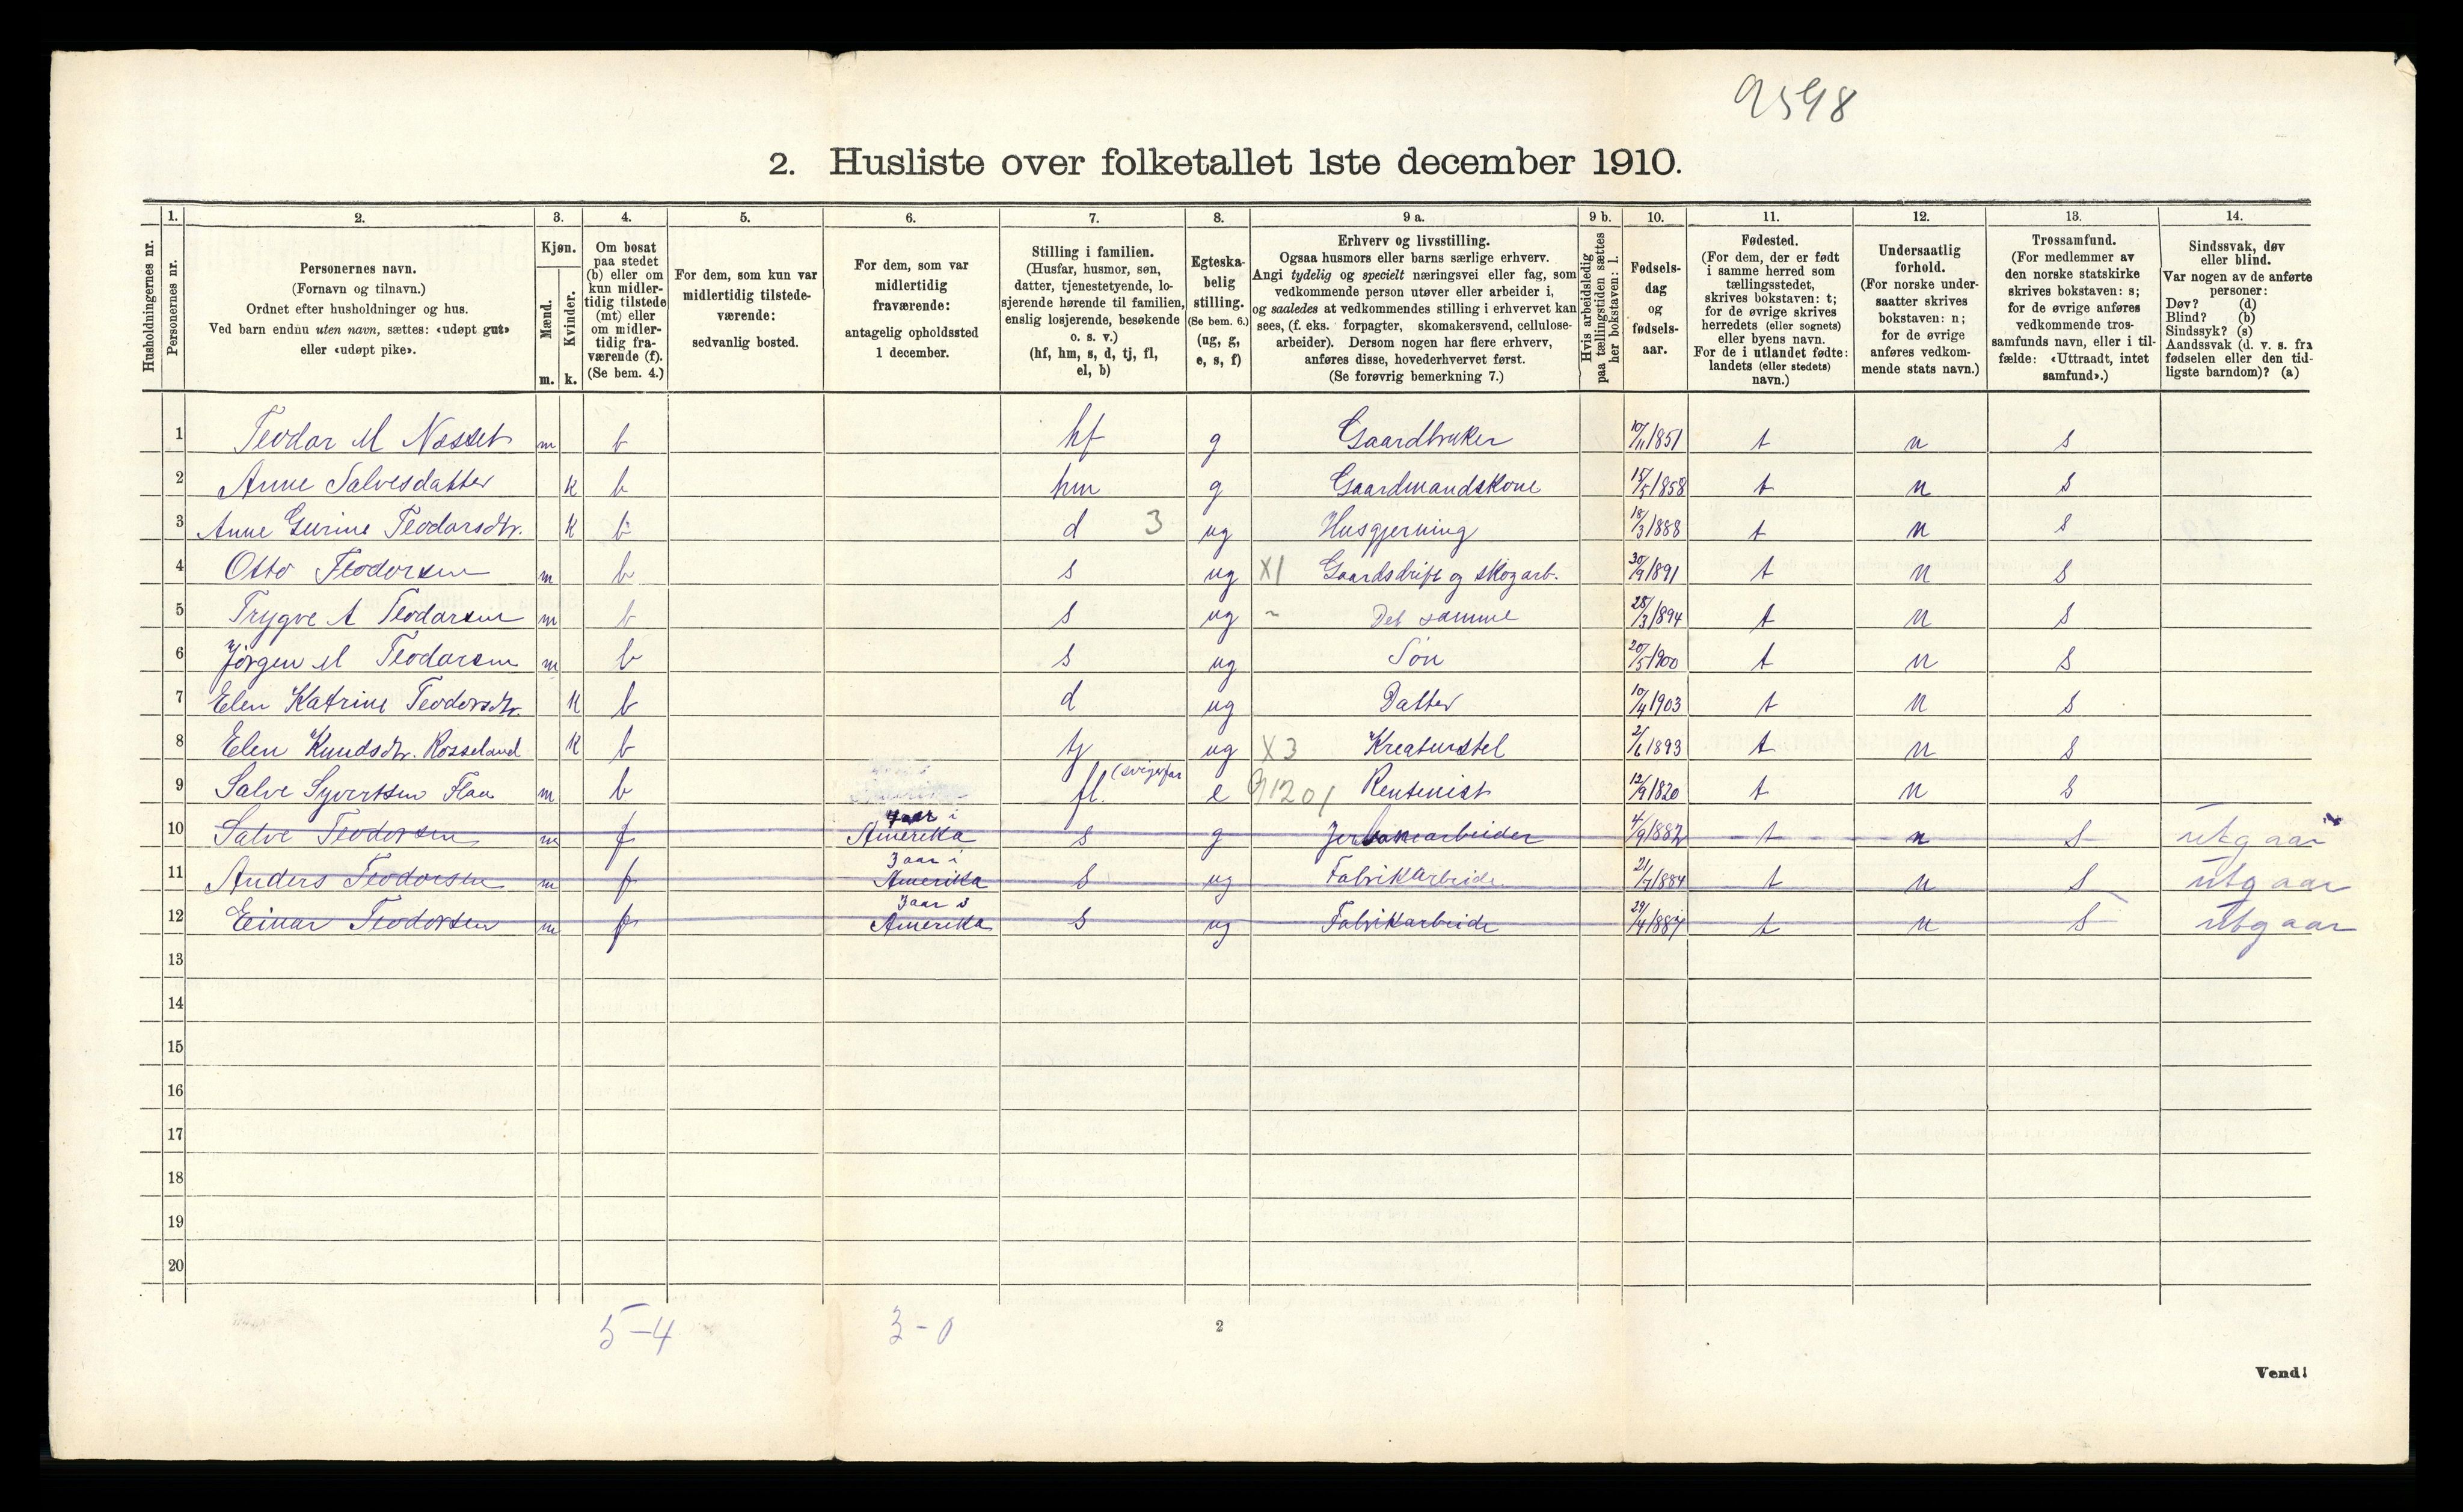 9598
2. Husliste over folketallet 1ste december 1910.
Husholdningernes nr.
1. Personernes nr.
2. Personernes navn. (Fornavn og tilnavn.) Ordnet efter husholdninger og hus. Ved barn endnu uten navn, sættes: «udøpt gut» eller «udøpt pike».
3. Kjøn. Mænd. m. Kvinder. k.
4. Om bosat paa stedet (b) eller om kun midlertidig tilstede (mt) eller om midlertidig fraværende (f). (Se bem. 4.)
5. For dem, som kun var midlertidig tilstedeværende: sedvanlig bosted.
6. For dem, som var midlertidig fraværende: antagelig opholdssted 1 december.
7. Stilling i familien. (Husfar, husmor, søn, datter, tjenestetyende, losjerende hørende til familien, enslig losjerende, besøkende o. s. v.) (hf, hm, s, d, tj, fl, el, b)
8. Egteskabelig stilling. (Se bem. 6.) (ug, g, e, s, f)
9 a. Erhverv og livsstilling. Ogsaa husmors eller barns særlige erhverv. Angi tydelig og specielt næringsvei eller fag, som vedkommende person utøver eller arbeider i, og saaledes at vedkommendes stilling i erhvervet kan sees, (f. eks. forpagter, skomakersvend, cellulosearbeider). Dersom nogen har flere erhverv, anføres disse, hovederhvervet først. (Se forøvrig bemerkning 7.)
9 b. Hvis arbeidsledig paa tællingstiden sættes her bokstaven: l.
10. Fødselsdag og fødselsaar.
11. Fødested. (For dem, der er født i samme herred som tællingsstedet, skrives bokstaven: t; for de øvrige skrives herredets (eller sognets) eller byens navn. For de i utlandet fødte: landets (eller stedets) navn.)
12. Undersaatlig forhold. (For norske undersaatter skrives bokstaven: n; for de øvrige anføres vedkommende stats navn.)
13. Trossamfund. (For medlemmer av den norske statskirke skrives bokstaven: s; for de øvrige anføres vedkommende trossamfunds navn, eller i tilfælde: «Uttraadt, intet samfund».)
14. Sindssvak, døv eller blind. Var nogen av de anførte personer: Døv? (d) Blind? (b) Sindssyk? (s) Aandssvak (d. v. s. fra fødselen eller den tidligste barndom)? (a)
1 Teodar M Nesset m b hf g Gaardbruker 10/11 1851 t n s
2 Anne Salvesdatter k b hm g Gaardmandskone 15/5 1858 t n s
3 Anne Gurine Teodarsdtr. k b d 3 ug Husgjerning 18/3 1888 t n s
4 Otto Teodorsen m b s ug X1 Gaardsdrift og skogarb. 30/9 1891 t n s
5 Trygve A Teodarsen m b s ug " Det samme 28/3 1894 t n s
6 Jörgen M Teodarsen m b s ug Søn 20/5 1900 t n s
7 Elen Katrine Teodorsdtr. k b d ug Datter 10/4 1903 t n s
8 Elen Knudsdtr. Rosseland k b tj ug X3 Kreaturstel 2/6 1893 t n s
9 Salve Syvertsen Flaa m b fl. (svigerfar e 91201 Rentenist 12/9 1820 t n s
10 Salve Teodorsen m f aar i Amerika s g Jerbanearbeider 4/9 1882 t n s utgaar
11 Anders Teodorsen m f 3 aar i Amerika s ug Fabrikarbeide 21/7 1884 t n s utgaar
12 Einar Teodorsen m f 3 aar i Amerika s ug Fabrikarbeide 29/4 1887 t n s utgaar
13
14
15
16
17
18
19
20
5-4 3-0
2
Vend!